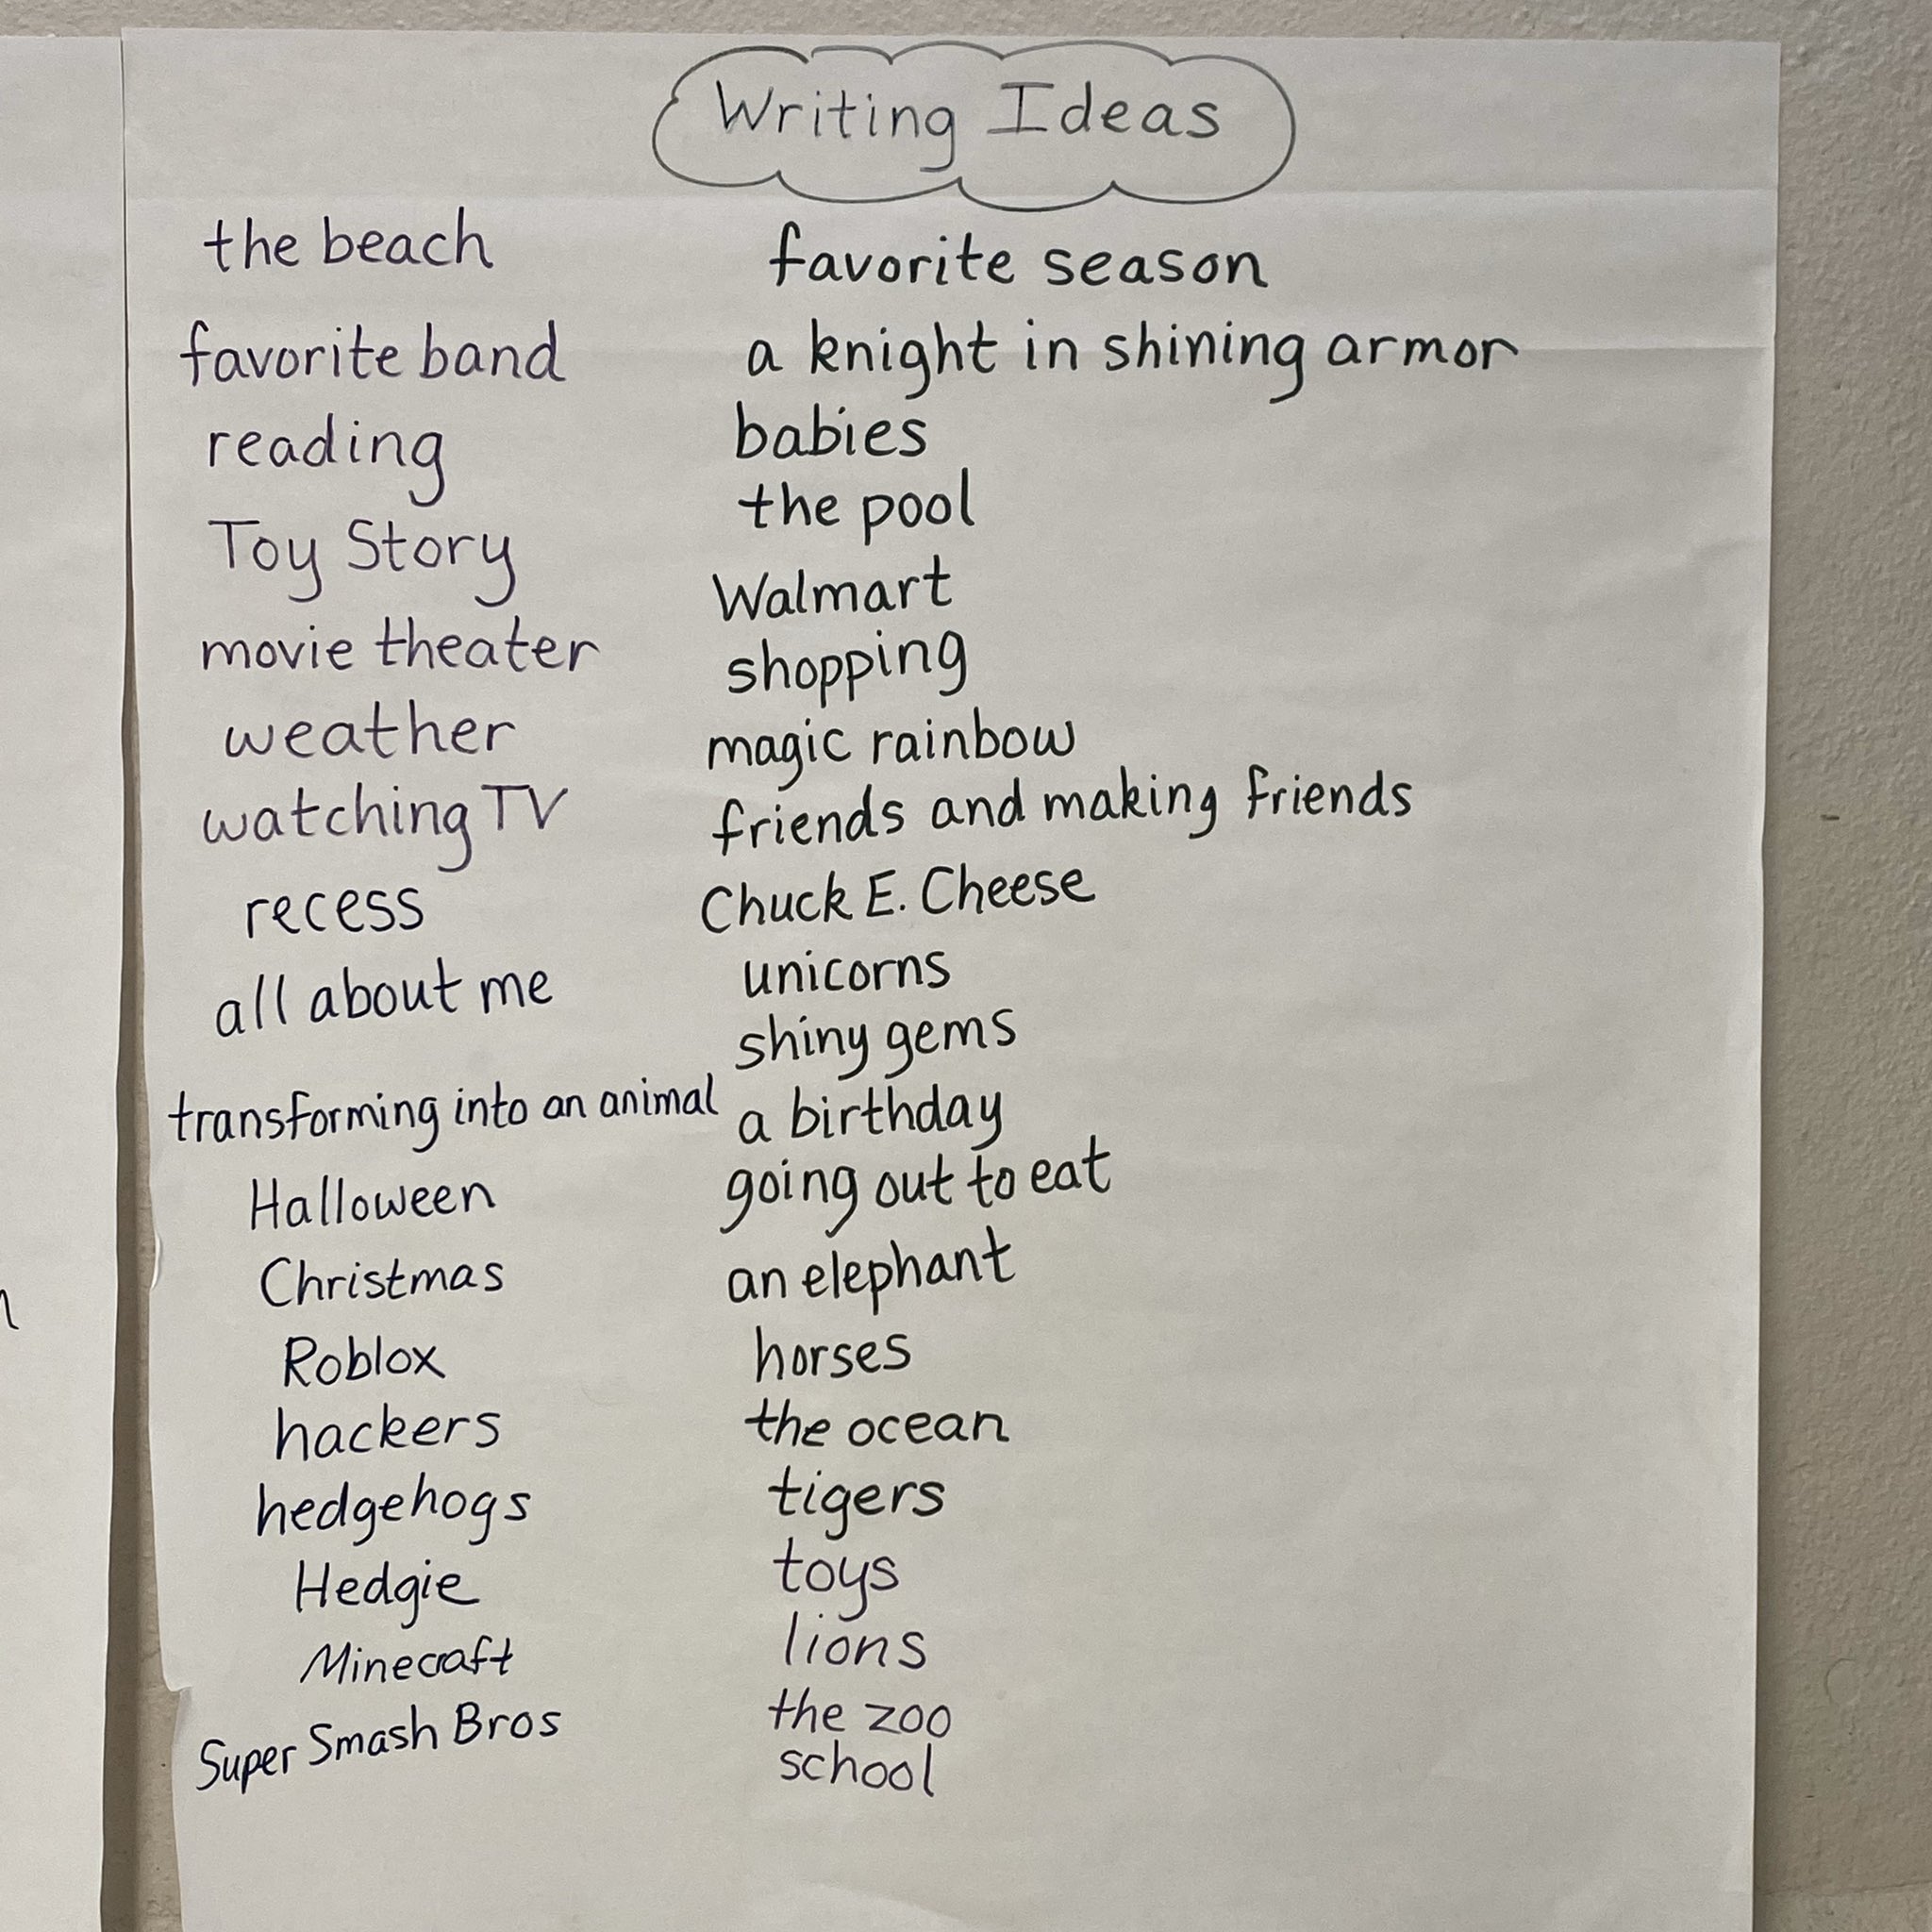 Writing Ideas
the beach
favorite band
reading
Toy Story
movie theater
weather
watching TV
recess
all about me
transforming into an animal
Halloween
Christmas
Roblox
hackers
hedgehogs
Hedgie
Minecraft
Super Smash Bros
favorite season
a knight in shining armor
babies
the pool
Walmart
shopping
magic rainbow
friends and making friends
Chuck E. Cheese
unicorns
shiny gems
a birthday
going out to eat
an elephant
horses
the ocean
tigers
toys
lions
the zoo
school